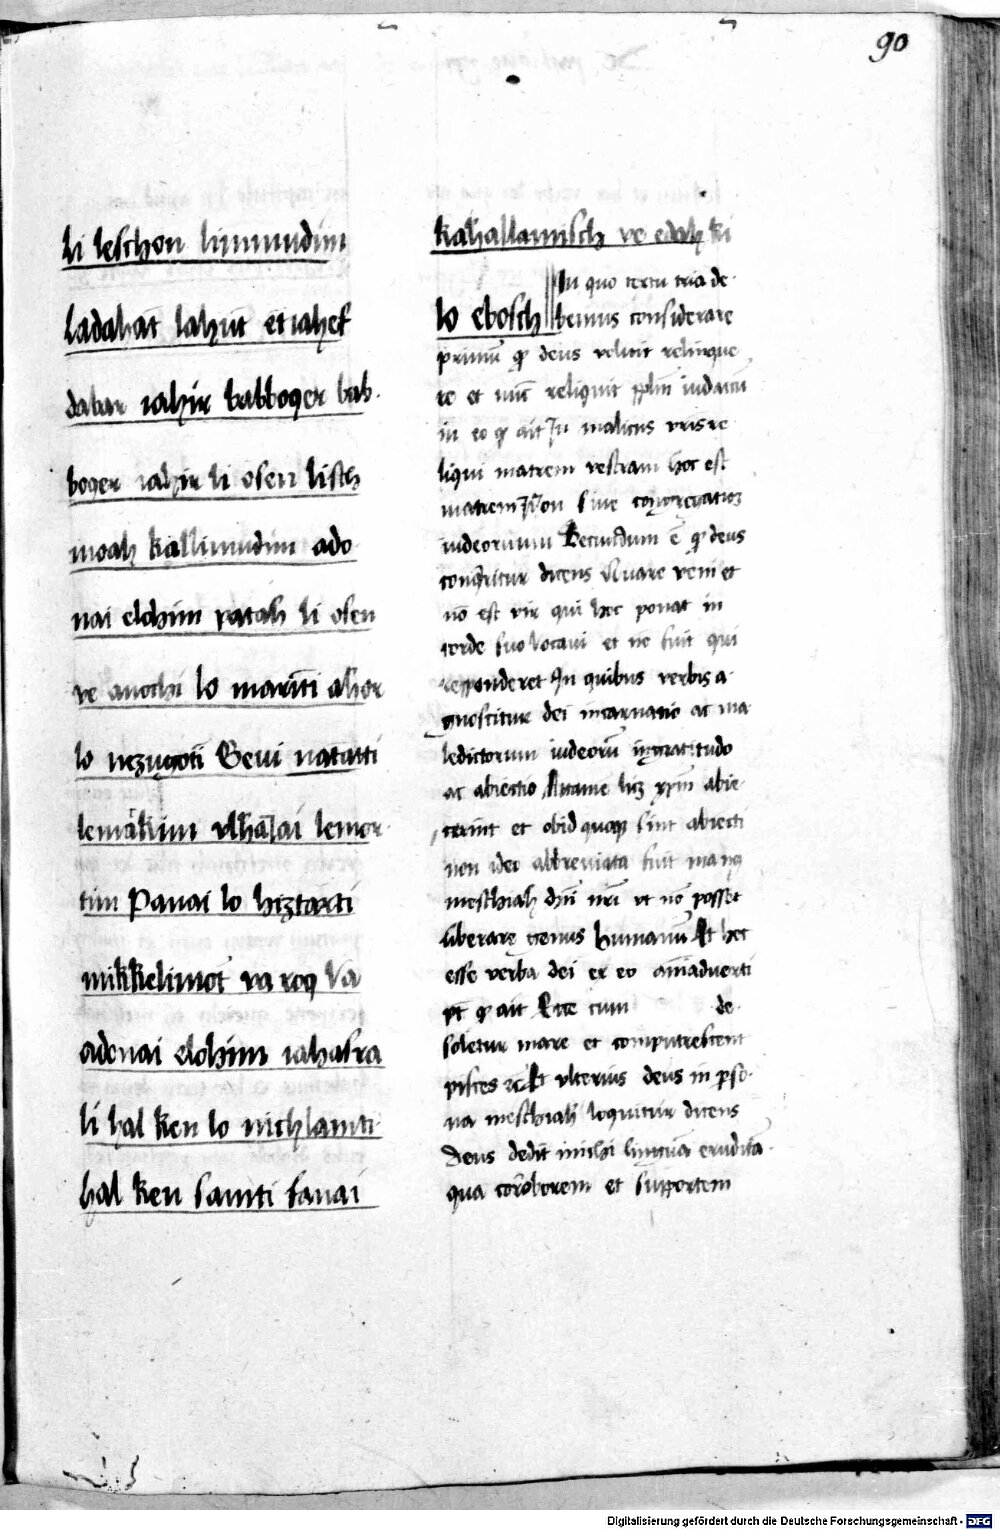 90
li leschon limmudim
ladahat lahut et iahef
dabar iahir babboqer bab
boqer iahir li osen lisch
moah kallimudim ado
nai elohim patah li osen
ve anochi lo mariti ahor
lo nezugoti Gevi natatti
lemakim ulhaiai lemor
tim Panai lo hiztarti
mikkelimot va roq Va
adonai elohim iahasra
li hal ken lo nichlamti
hal ken samti fanai
kahallamisch ve edah ki
lo ebosch
In quo textu tria de
bemus considerare
primū qͦ deus voluit relinque
re et nūc reliquit pplm iudaicū
in eo qͦ ait In malicus vris re
liqui matrem vestram hoc est
matrem sive congregatioz
iudeorum Secundum ē qͦ deus
conqritur dicens Quare veni et
nō est vir qui hoc ponat in
corde suo Vocaui et nō fuit qui
responderet In quibus verbis a
gnoscitur dei incarnatio ac ma
ledictorum iudeorū ingratitudo
ac abiectio Attamē licz xpm abie
cerint et obid quoqz sint abiecti
non ideo abbreviata fuit manq
meschiah dn̄i nr̄i vt nō posset
liberare genus humanū Et hec
esse verba dei ex eo aīaduerti
pt̄ qͦ ait Ecce cum de
soletur mare et computrescent
pisces zc̄ Et vlterius deus in pso
na meschiah loquitur dicens
Deus dedit michi linguā eruditā
qua corōborem et supportem
Digitalisierung gefördert durch die Deutsche Forschungsgemeinschaft - DFG